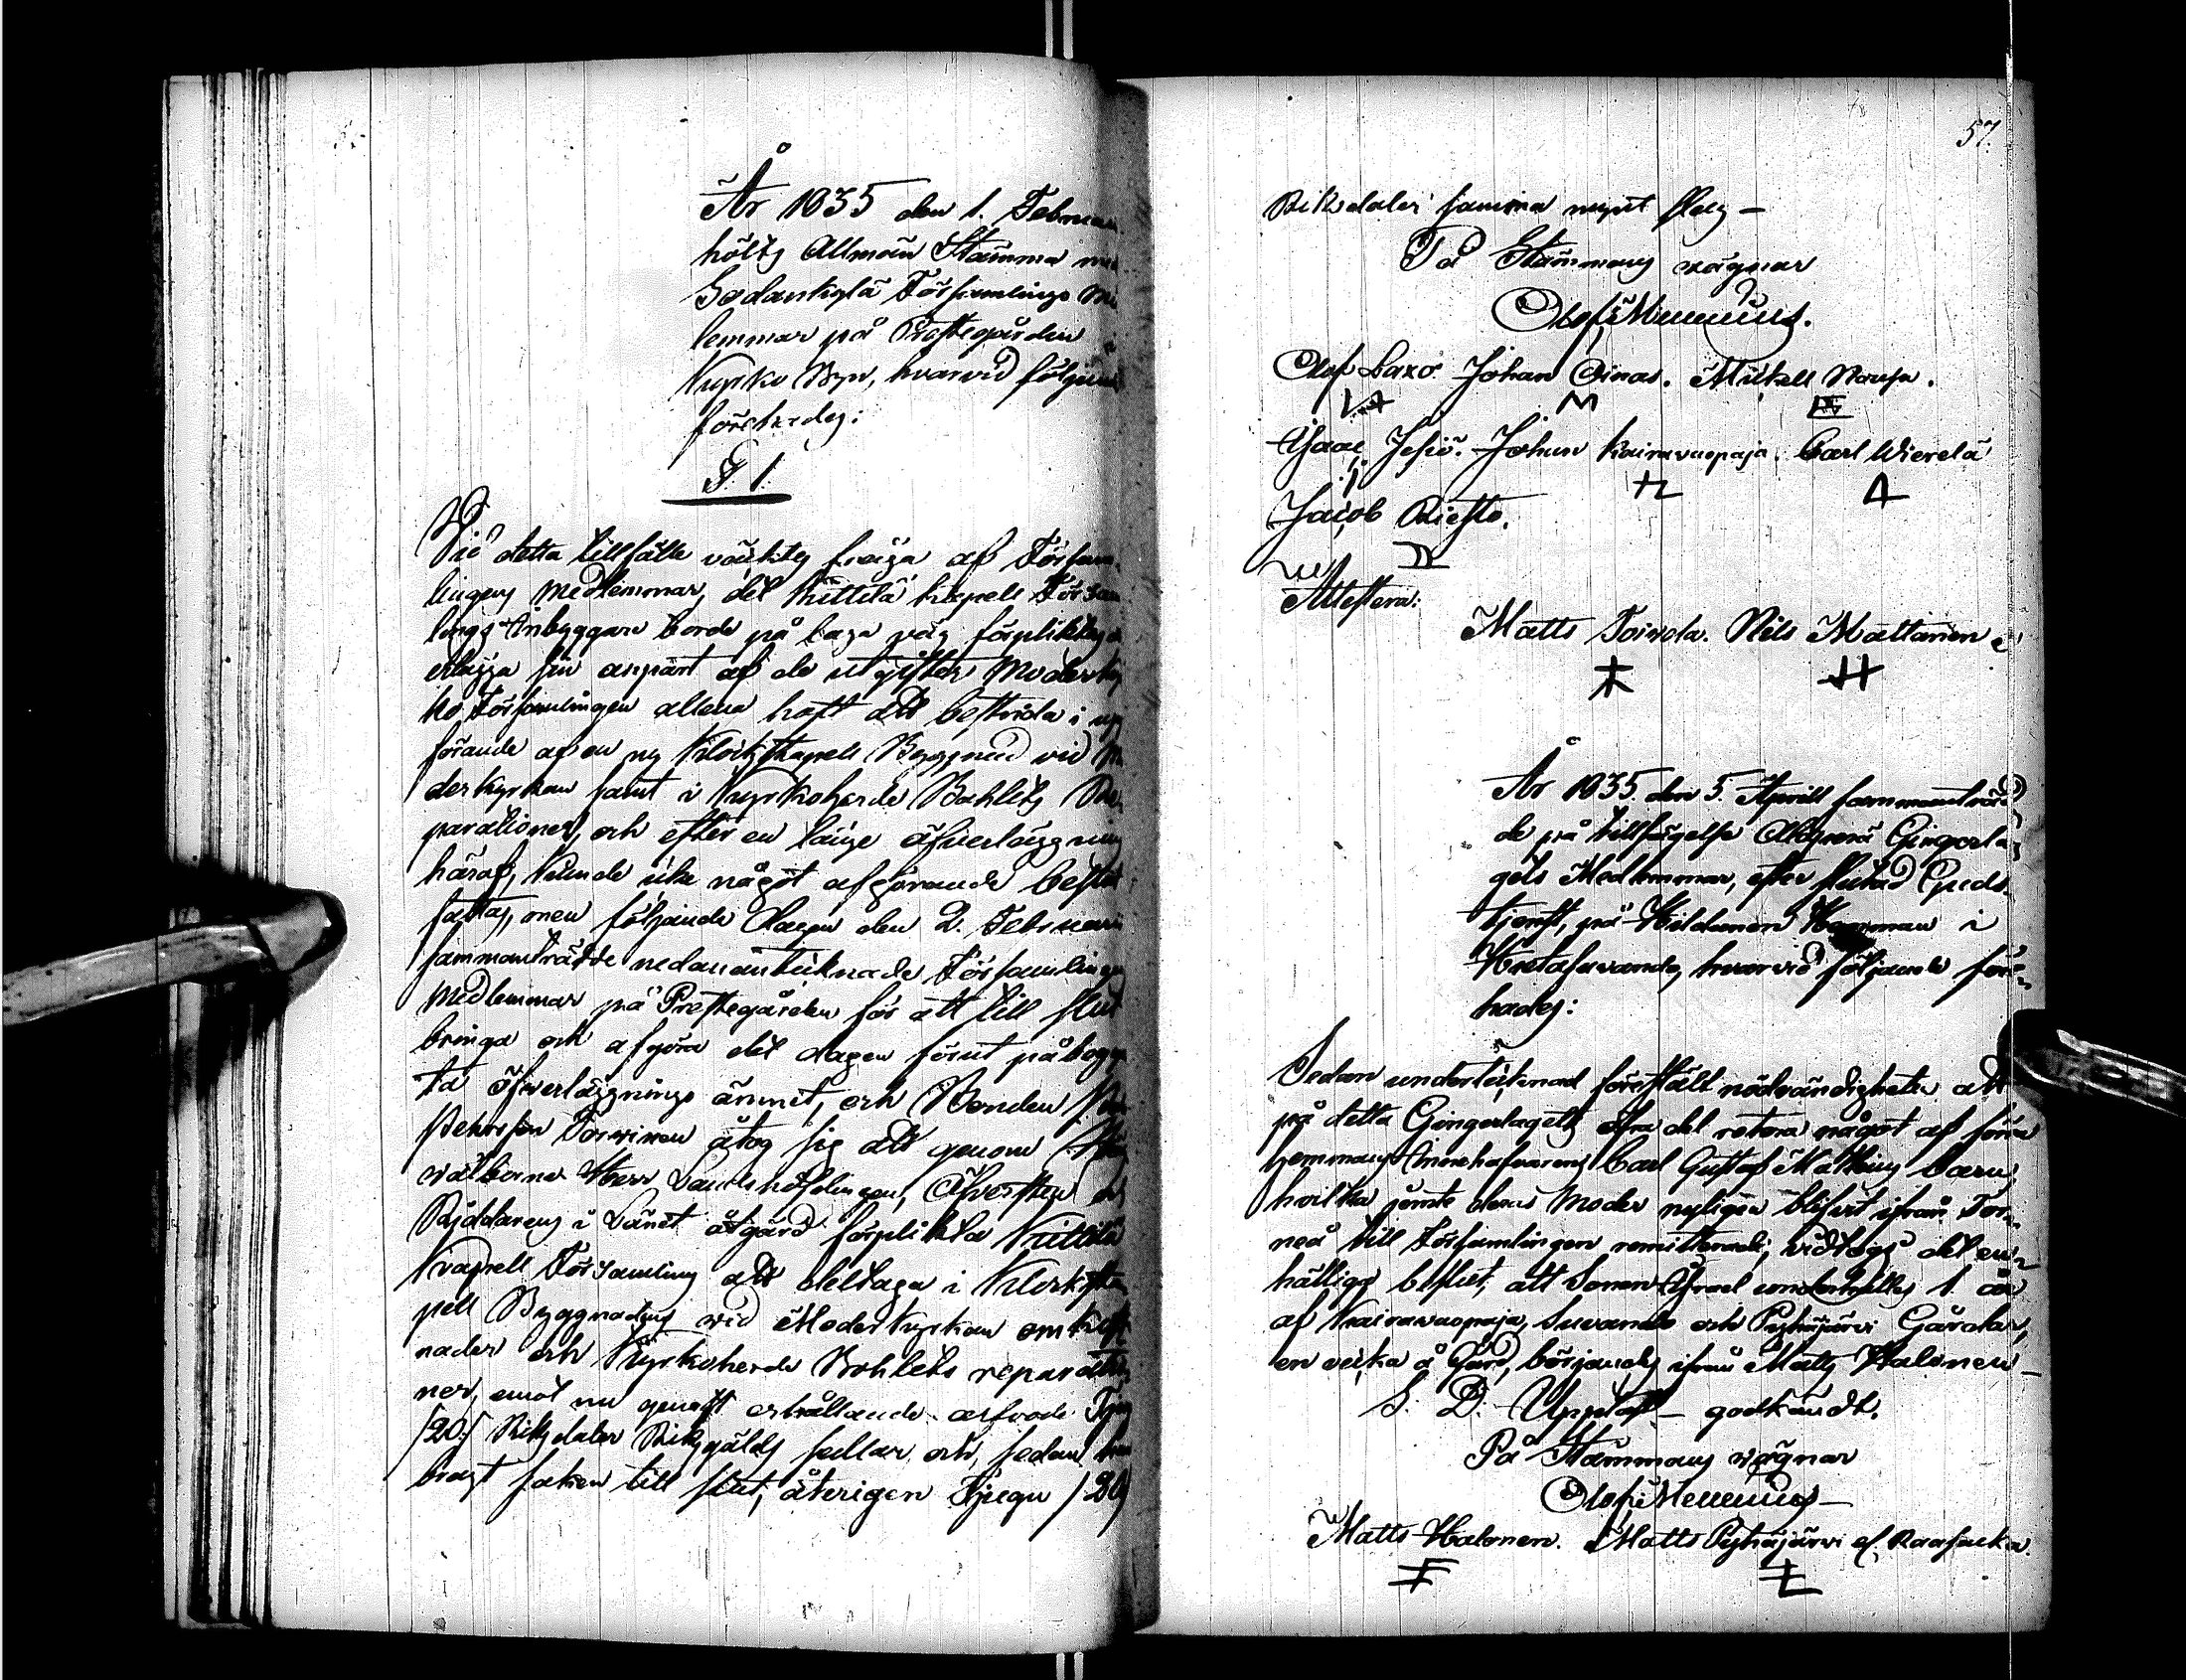 År 1835 den 1. Februari
hölts Allmän Stämma med
Sodankylä Församlings Med
lemmar på Prestegården i
Kyrko Byn, hvarvid följande
förehades:
§ 1.
Vid detta tillfälle väcktes fråga af Försam-
lingens Medlemmar, det Kittilä kapell Försam
lings Inbyggare borde på laga väg förpliktas at
erlägga sin anpart af de utgifter Moderkyr
ko Församlingen allena haft att bestrida i upp
förande af en ny Klockstapels Byggnad vid Mo
derkyrkan samt i Kyrkoherde Bohlets Re-
parationer, och efter en länge öfverläggning
häraf, kunde icke något afgörande beslut
fattas, men följande dagen den 2. Februari
sammanträdde nedanantecknade Församlings
Medlemmar på Prestegården för att till slut
bringa och afgöra det dagen förut påbegyn
ta öfverläggnings ämnet, och Bonden
Pehrsson Torvinen åtog sig att genom
välborne Herr Landshöfdingen, Öfversten och
Riddarens i Länet åtgärd förplikta Kittilä
Kapell Församling att deltaga i Klocksta
pell Byggnadens vid Moderkyrkan omkost
nader och Kyrkoherde Bohlets reparatio
ner, emot nu genast erhållande arfvode Tjugu
/20/ Riksdaler Riksgälds sedlar och, sedan han
bragt saken till slut, återigen Tjugu /20/
57.
Riksdaler samma mynt slag –
På Stämmans vägnar
Olof Mellenius.
Olof Saxo. Johan Oinas. Mickell
Isaac Jesiö. Johan Kairavuopaja. Carl Wierelä
Jacob Riesto.
Attestera:
Matts Toivola. Nils Mattanen
År 1835. den 5. April sammanträd
de på tillsägelse Gingerla
gets Medlemmar, efter slutad Guds-
tjenst, på Hemman i
hvarvid följande före-
hades:
Sedan undertecknad förestält nödvändigheten att
på detta Gingerlagets del rotera något af förra
hemmans Innehafvarens Carl Gustaf barn,
hvilka jemte deras Moder nyligen blifvit ifrån Tor-
neå till Församlingen remitterade, vidtogs det en-
hälliga beslut, att Sonen Israel underhålles 1. år
af Kairavuopaja, Suvando och Pyhäjärvi Gårdar,
en vecka å Gård, börjandes ifrån Matts Halonen –
S. D. Uppläst – godkändt.
På Stämmans vägnar
Olof Mellenius –
Matts Halonen. Matts Pyhäjärvi